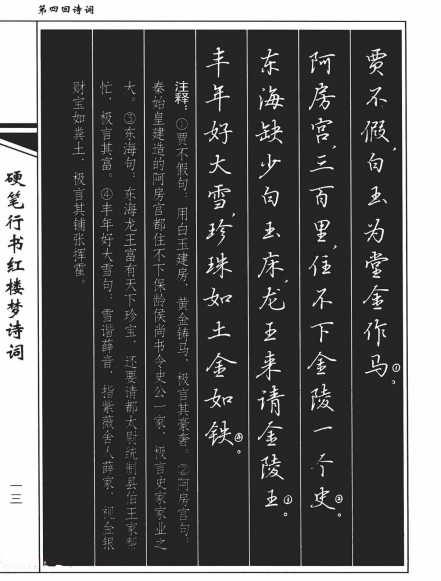 第四回诗词
贾不假，白玉为堂金作马①。
阿房宫，三百里，住不下金陵一个史②。
东海缺少白玉床，龙王来请金陵王③。
丰年好大雪，珍珠如土金如铁④。
注释：①贾不假句：用白玉建房、黄金铸马，极言其豪奢。②阿房宫句：
秦始皇建造的阿房宫都住不下保龄侯尚书令史公一家，极言史家家业之
大。③东海句：东海龙王富有天下珍宝，还要请都太尉统制县伯王家帮
忙，极言其富。④丰年好大雪句：雪谐薛音，指紫薇舍人薛家，视金银
财宝如粪土，极言其铺张挥霍。
硬笔行书红楼梦诗词
一三